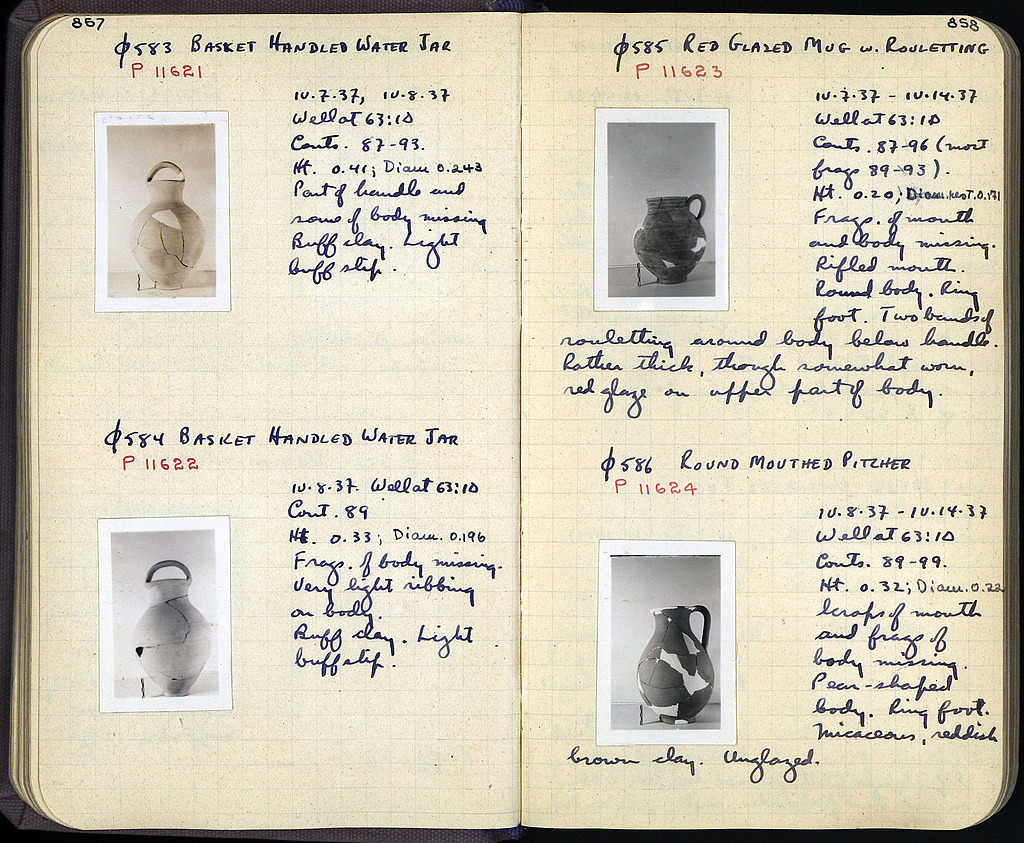 857
φ583 BASKET HANDLED WATER JAR
P 11621
10.7.37, 10.8.37
Well at 63:1Δ
Conts. 87-93.
Ht. 0.41; Diam 0.243
Part of handle and
some of body missing
Buff clay. Light
buff slip.
φ584 BASKET HANDLED WATER JAR
P 11622
10.8.37. Well at 63:1Δ
Cont. 89
Ht. 0.33; Diam. 0.196
Frags. of body missing.
Very light ribbing
on body.
Buff clay. Light
buff slip.
858
φ585 RED GLAZED MUG w. ROULETTING
P 11623
10.7.37 - 10.14.37
Well at 63:1Δ
Conts. 87-96 (most
frags 89-93).
Ht. 0.20; Diam. rest. 0.171
Frags. of mouth
and body missing.
Rifled mouth.
Round body. Ring
foot. Two bands of
rouletting around body below handle.
Rather thick, though somewhat worn,
red glaze on upper part of body.
φ586 ROUND MOUTHED PITCHER
P 11624
10.8.37 - 10.14.37
Well at 63:1Δ
Conts. 89-99.
Ht. 0.32; Diam. 0.22
Scraps of mouth
and frags of
body missing.
Pear-shaped
body. Ring foot.
Micaceous, reddish
brown clay. Unglazed.